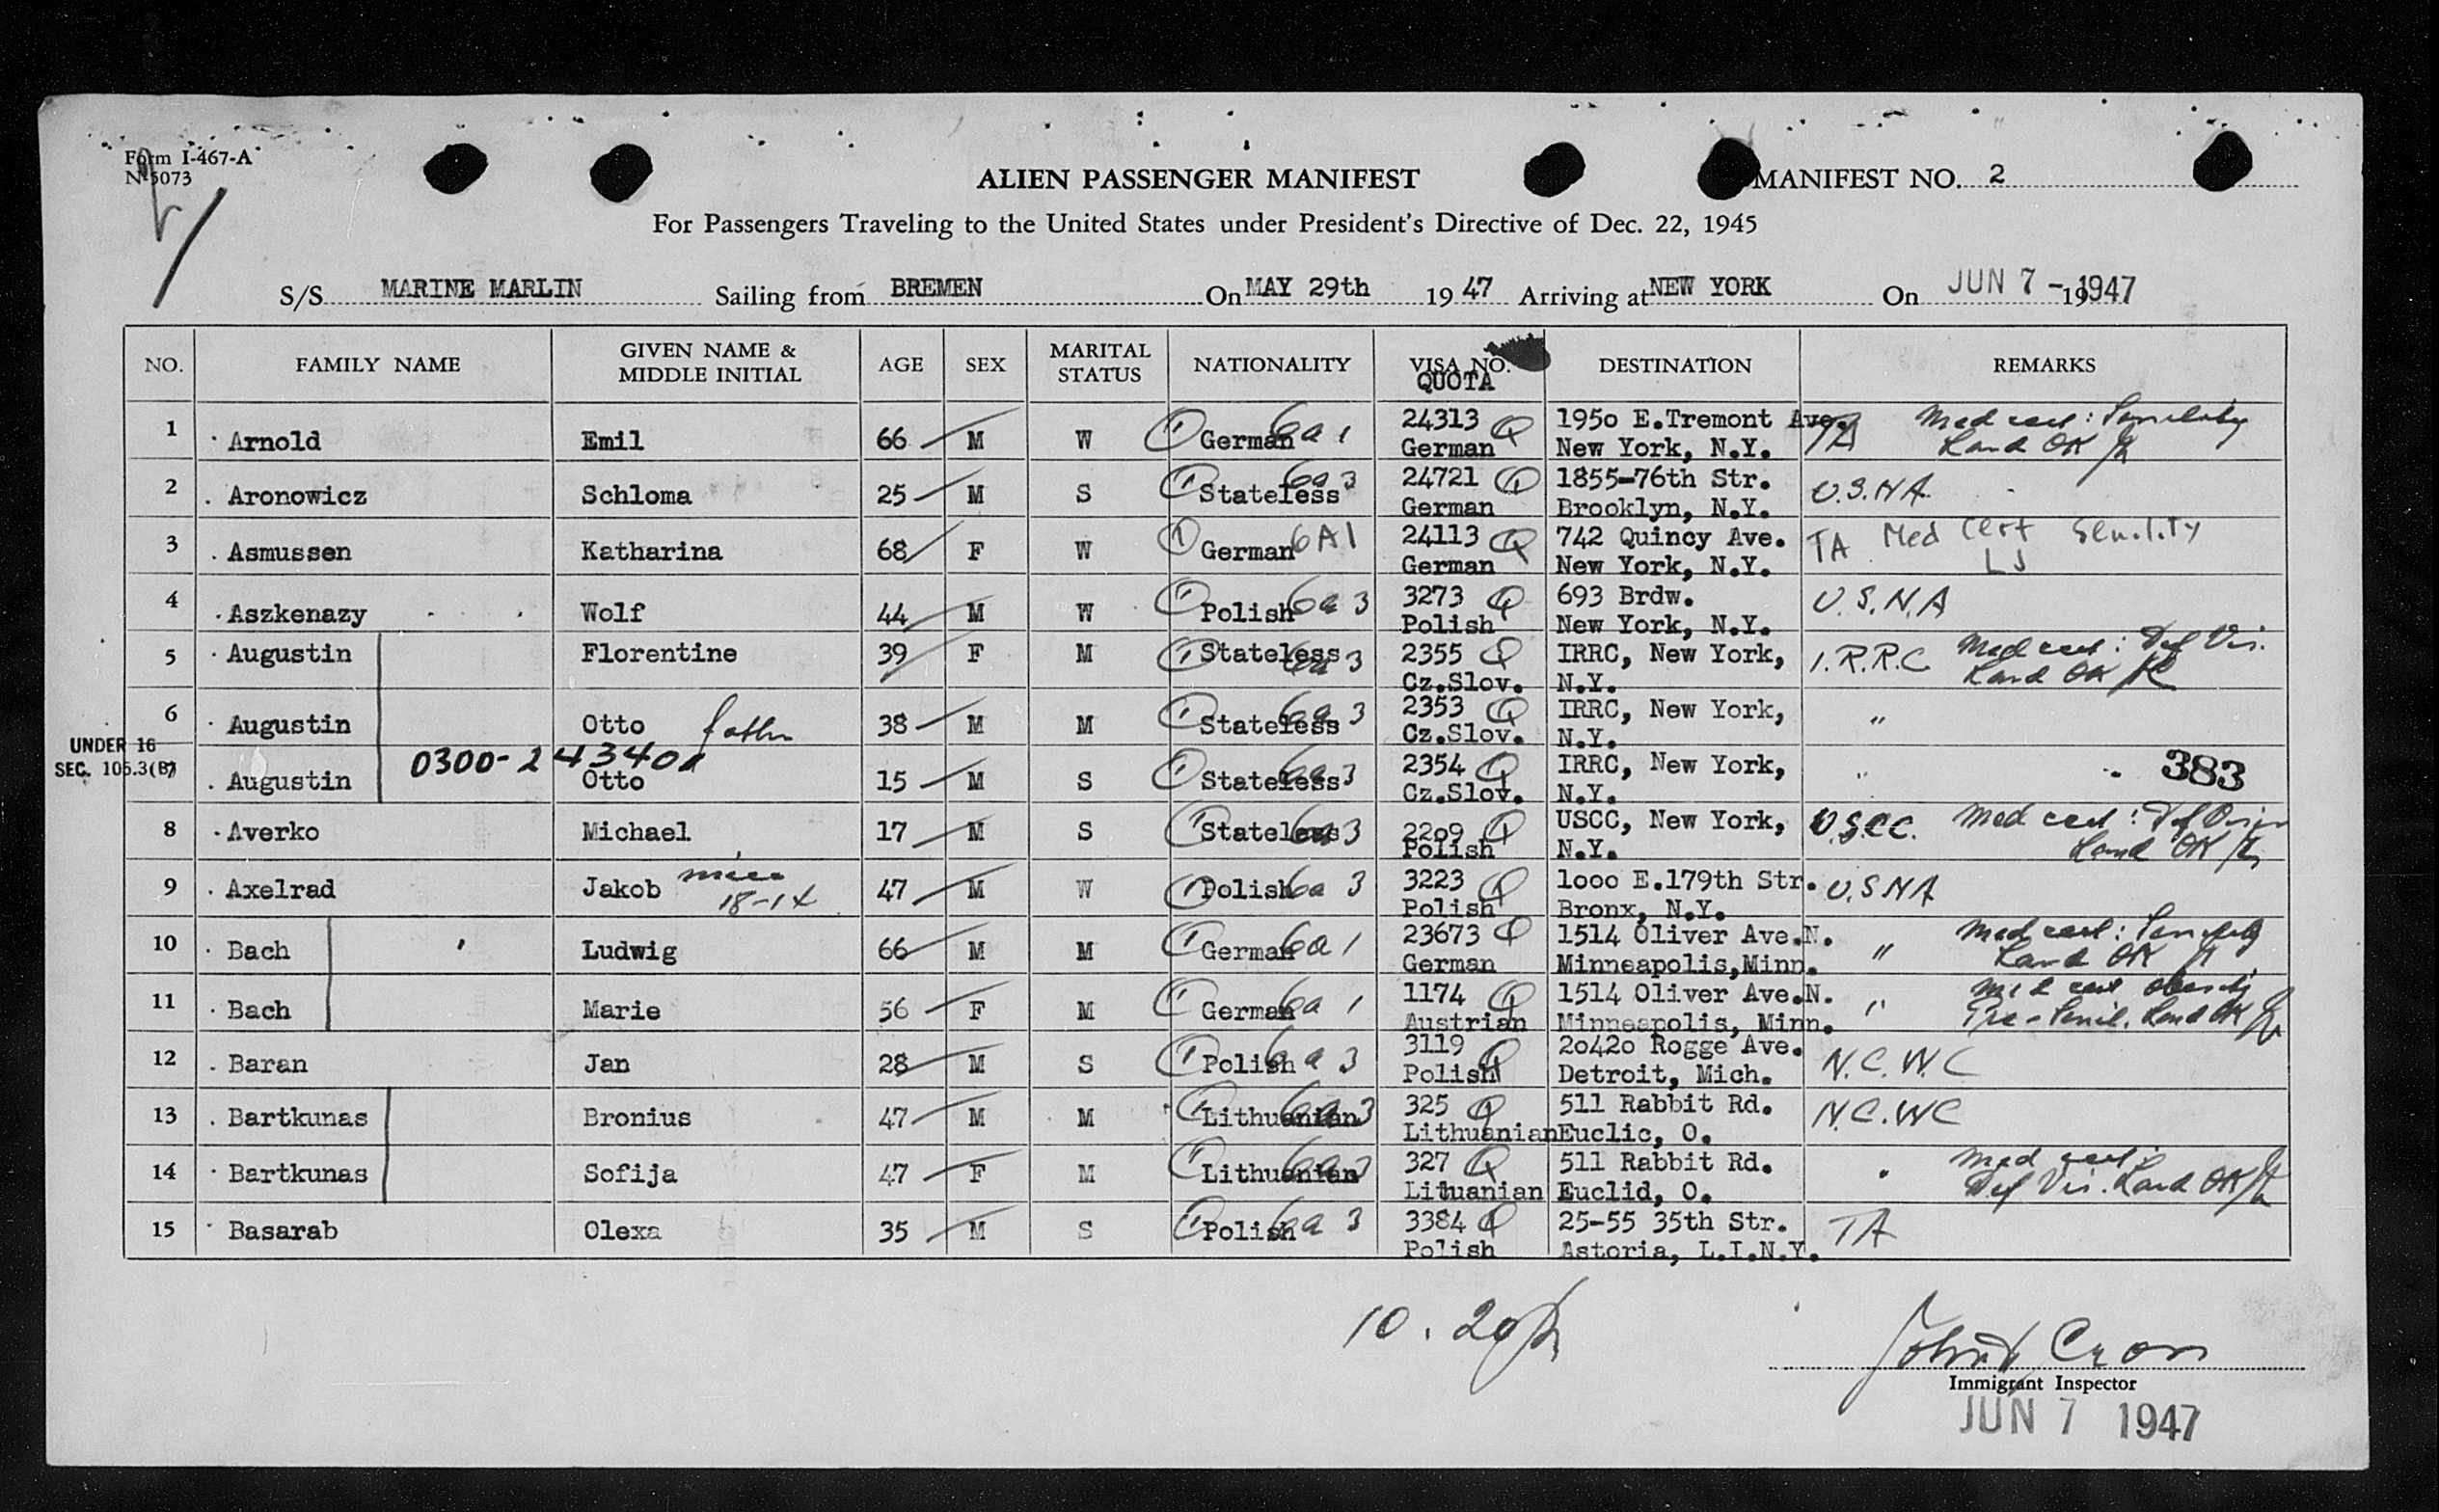 Form I-467-A
N-5073
ALIEN PASSENGER MANIFEST
MANIFEST NO. 2
For Passengers Traveling to the United States under President's Directive of Dec. 22, 1945
S/S MARINE MARLIN Sailing from BREMEN On MAY 29th 19 47 Arriving at NEW YORK On JUN 7 - 1947
NO. FAMILY NAME GIVEN NAME & MIDDLE INITIAL AGE SEX MARITAL STATUS NATIONALITY VISA NO. QUOTA DESTINATION REMARKS
1 Arnold Emil 66 M W German 6a1 24313 Q 1950 E.Tremont Ave. TA Med cert: Senility
German New York, N.Y. Land OK
2 Aronowicz Schloma 25 M S Stateless 6a3 24721 Q 1855-76th Str. U.S.N.A.
German Brooklyn, N.Y.
3 Asmussen Katharina 68 F W German 6A1 24113 Q 742 Quincy Ave. TA Med Cert Senility
German New York, N.Y. LJ
4 Aszkenazy Wolf 44 M W Polish 6a3 3273 Q 693 Brdw. U.S.N.A
Polish New York, N.Y.
5 Augustin Florentine 39 F M Stateless 6a3 2355 Q IRRC, New York, I.R.R.C Med cert: Def Vis.
Cz.Slov. N.Y. Land OK
6 Augustin Otto father 38 M M Stateless 6a3 2353 Q IRRC, New York, "
Cz.Slov. N.Y.
UNDER 16
SEC. 106.3(B)
0300-243400
7 Augustin Otto 15 M S Stateless 6a3 2354 Q IRRC, New York, " 383
Cz.Slov. N.Y.
8 Averko Michael 17 M S Stateless 6a3 2209 Q USCC, New York, U.S.C.C. Med cert: Def Vision
Polish N.Y. Land OK
9 Axelrad Jakob 18-14 47 M W Polish 6a3 3223 Q 1000 E.179th Str. U.S.N.A
Polish Bronx, N.Y.
10 Bach Ludwig 66 M M German 6a1 23673 Q 1514 Oliver Ave.N. " Med cert: Senility
German Minneapolis,Minn. Land OK
11 Bach Marie 56 F M German 6a1 1174 Q 1514 Oliver Ave.N. " Med cert obesity
Austrian Minneapolis, Minn. Pre-Senil. Land OK
12 Baran Jan 28 M S Polish 6a3 3119 Q 20420 Rogge Ave. N.C.W.C
Polish Detroit, Mich.
13 Bartkunas Bronius 47 M M Lithuanian 6a3 325 Q 511 Rabbit Rd. N.C.WC
Lithuanian Euclic, O.
14 Bartkunas Sofija 47 F M Lithuanian 6a3 327 Q 511 Rabbit Rd. " Med cert:
Lituanian Euclid, O. Def Vis. Land OK
15 Basarab Olexa 35 M S Polish 6a3 3384 Q 25-55 35th Str. TA
Polish Astoria, L.I.N.Y.
10.20
Immigrant Inspector
JUN 7 1947